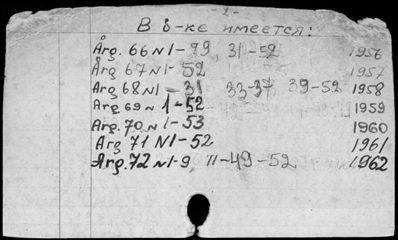 - 2 -
В б-ке имеется:
Årg. 66 N 1-29, 31-52 1956
Årg 67 N 1-52 1957
Arg 68 N 1-31 33-37 39-52 1958
Arg 69 N 1-52 1959
Arg. 70 N 1-53 1960
Arg 71 N 1-52 1961
Arg. 72 N 1-9, 11-49-52 1962